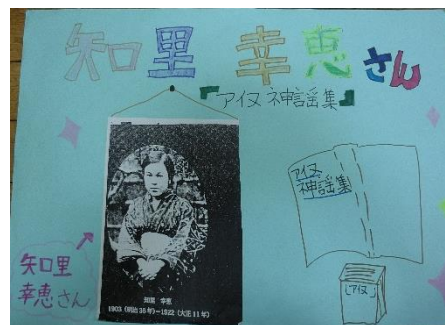 知里 幸恵さん
『アイヌ神謡集』
アイヌ
神謡集
知里
幸恵さん
知里 幸恵
1903 (明治36年)-1922 (大正11年)
(アイヌ)